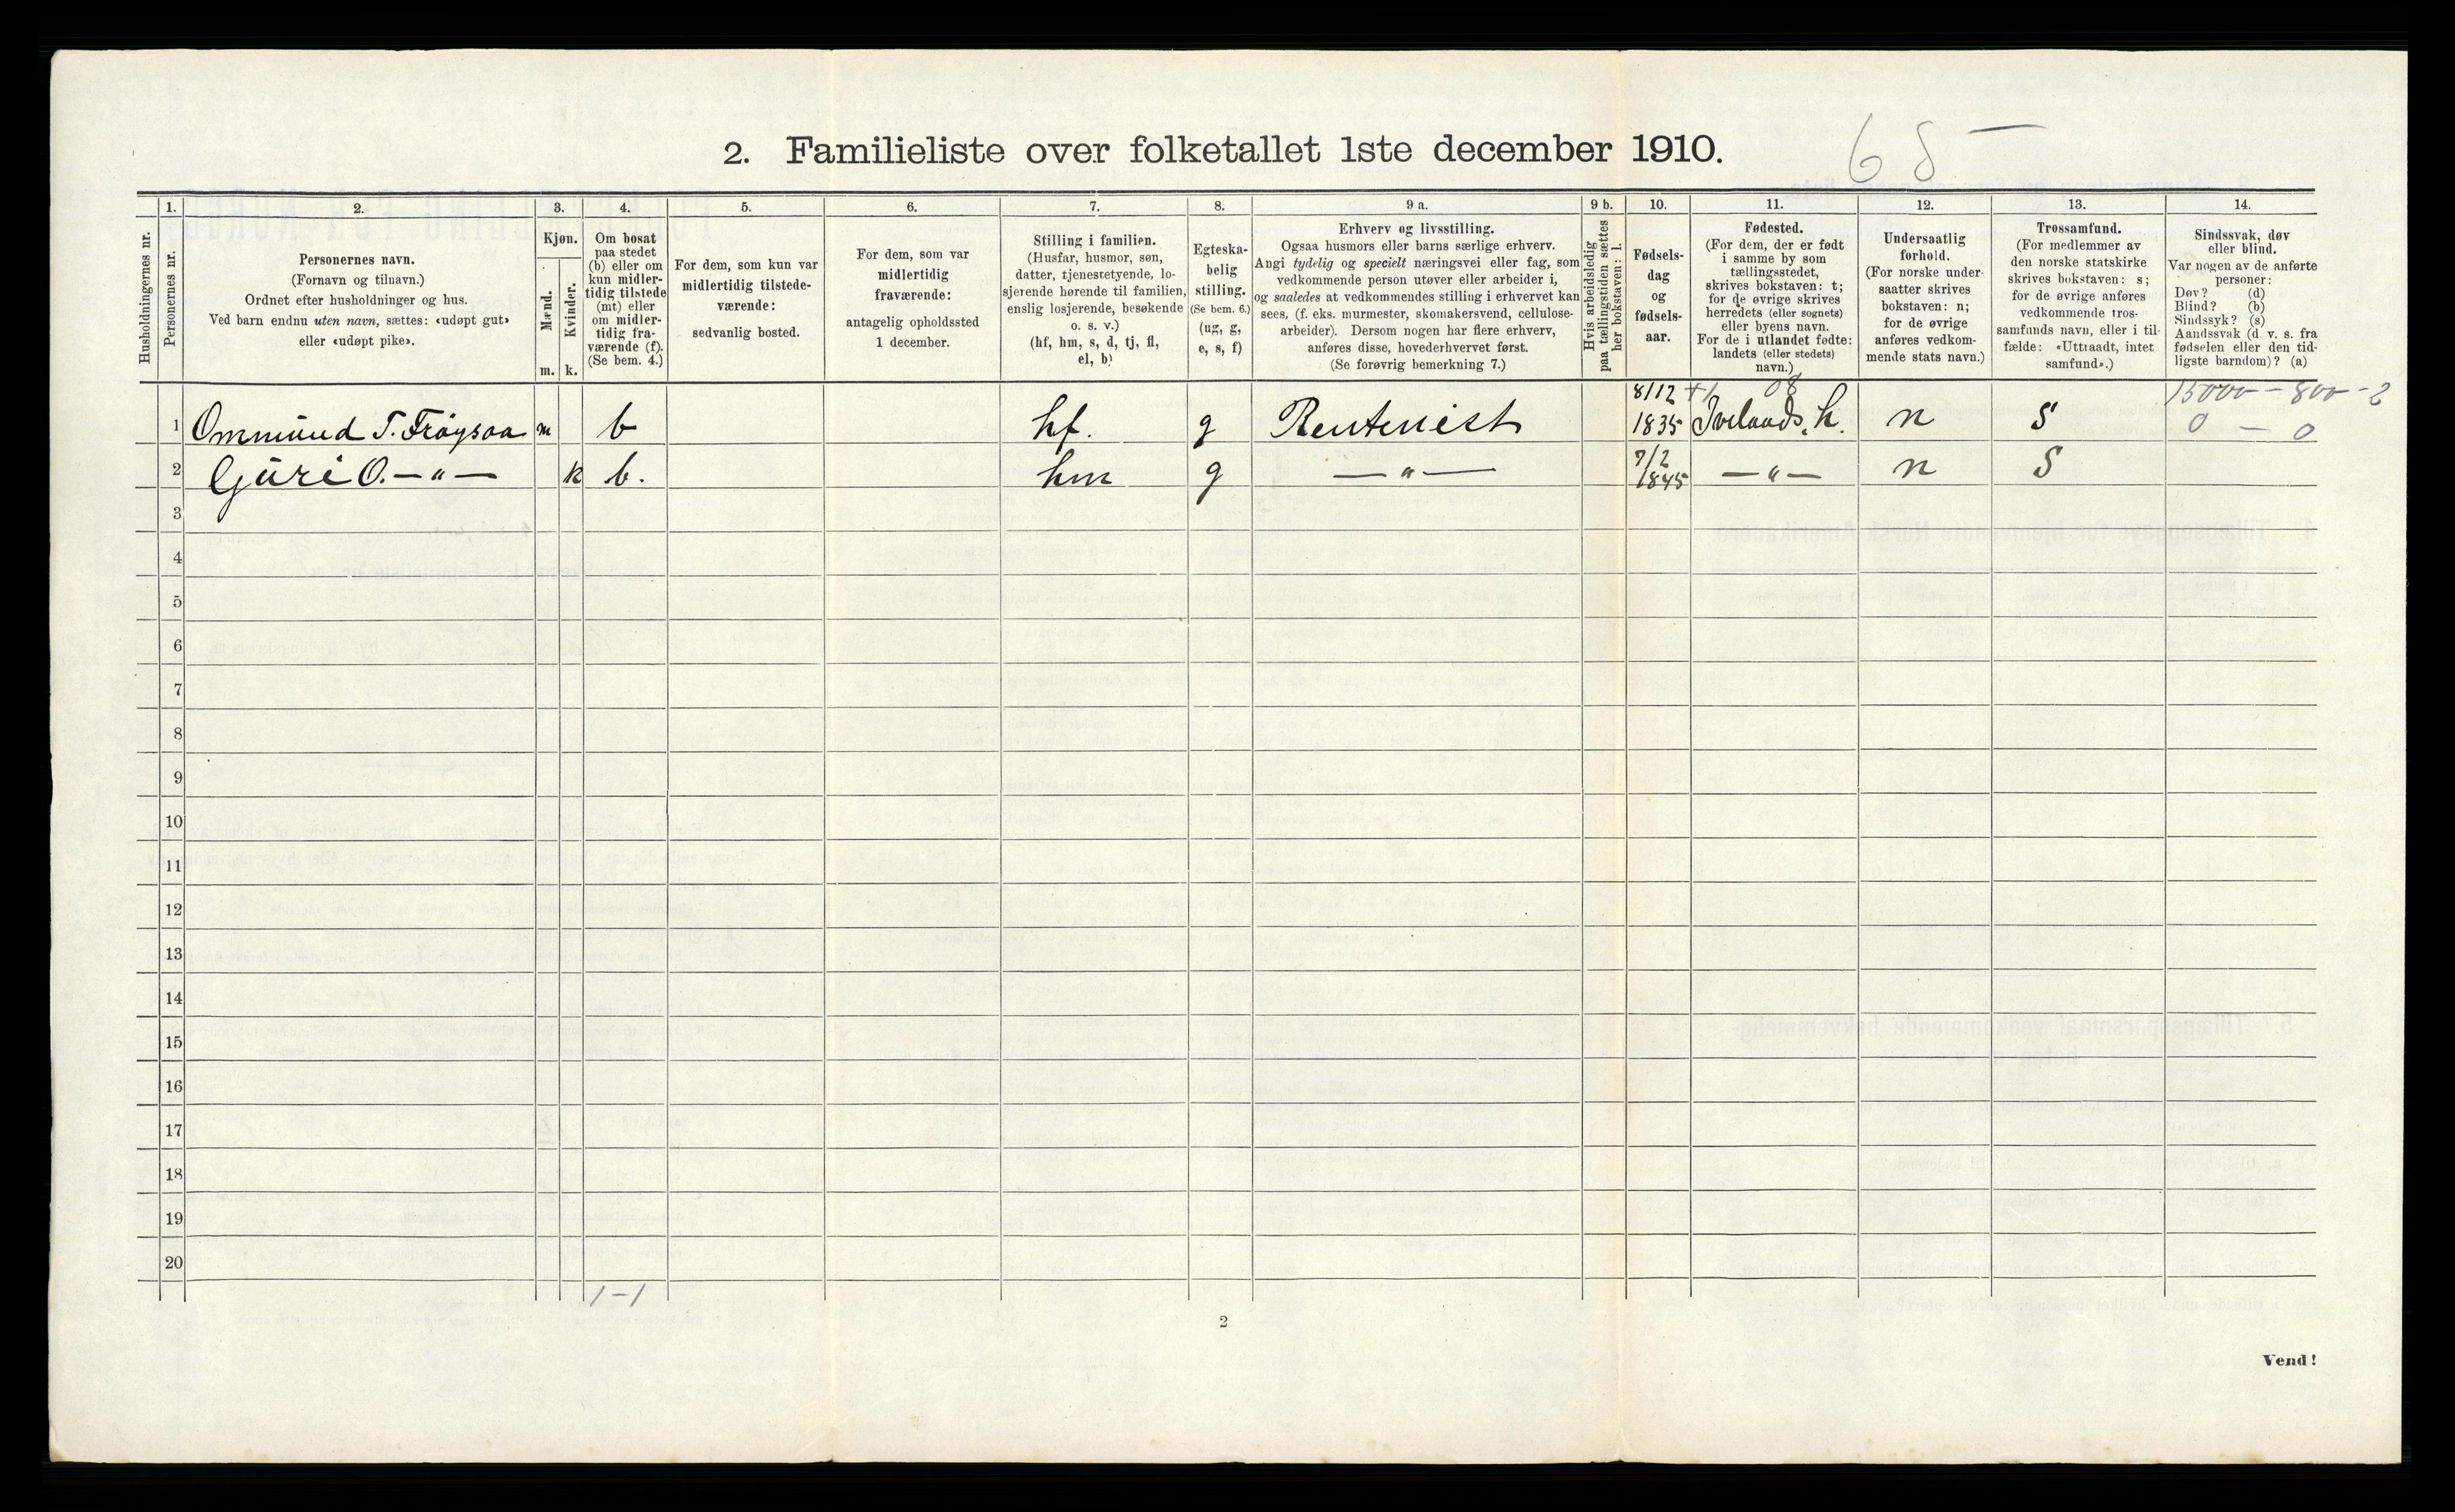 65 —
2. Familieliste over folketallet 1ste december 1910.
Husholdningernes nr.
1.
Personernes nr.
2.
Personernes navn.
(Fornavn og tilnavn.)
Ordnet efter husholdninger og hus.
Ved barn endnu uten navn, sættes: «udøpt gut»
eller «udøpt pike».
3.
Kjøn.
Mænd.
m.
Kvinder.
k.
4.
Om bosat
paa stedet
(b) eller om
kun midler-
tidig tilstede
(mt) eller
om midler-
tidig fra-
værende (f).
(Se bem. 4.)
5.
For dem, som kun var
midlertidig tilstede-
værende:
sedvanlig bosted.
6.
For dem, som var
midlertidig
fraværende:
antagelig opholdssted
1 december.
7.
Stilling i familien.
(Husfar, husmor, søn,
datter, tjenestetyende, lo-
sjerende hørende til familien,
enslig losjerende, besøkende
o. s. v.)
(hf, hm, s, d, tj, fl,
el, b)
8.
Egteska-
belig
stilling.
(Se bem. 6.)
(ug, g,
e, s, f)
9 a.
Erhverv og livsstilling.
Ogsaa husmors eller barns særlige erhverv.
Angi tydelig og specielt næringsvei eller fag, som
vedkommende person utøver eller arbeider i,
og saaledes at vedkommendes stilling i erhvervet kan
sees, (f. eks. murmester, skomakersvend, cellulose-
arbeider). Dersom nogen har flere erhverv,
anføres disse, hovederhvervet først.
(Se forøvrig bemerkning 7.)
9 b.
Hvis arbeidsledig
paa tællingstiden sættes
her bokstaven: l.
10.
Fødsels-
dag
og
fødsels-
aar.
11.
Fødested.
(For dem, der er født
i samme by som
tællingsstedet,
skrives bokstaven: t;
for de øvrige skrives
herredets (eller sognets)
eller byens navn.
For de i utlandet fødte:
landets (eller stedets)
navn.)
12.
Undersaatlig
forhold.
(For norske under-
saatter skrives
bokstaven: n;
for de øvrige
anføres vedkom-
mende stats navn.)
13.
Trossamfund.
(For medlemmer av
den norske statskirke
skrives bokstaven: s;
for de øvrige anføres
vedkommende tros-
samfunds navn, eller i til-
fælde: «Uttraadt, intet
samfund».)
14.
Sindssvak, døv
eller blind.
Var nogen av de anførte
personer:
Døv? (d)
Blind? (b)
Sindssyk? (s)
Aandssvak (d. v. s. fra
fødselen eller den tid-
ligste barndom)? (a)
8/12 +1 08 15000 – 800 – 2
1 Ommund T. Frøysaa m b hf. g Rentenist 1835 Ivelands. h. n S 0 — 0
7/2
2 Guri O. — " — k b. hm g — " — 1845 — " — n S
3
4
5
6
7
8
9
10
11
12
13
14
15
16
17
18
19
20
1 – 1
2
Vend!